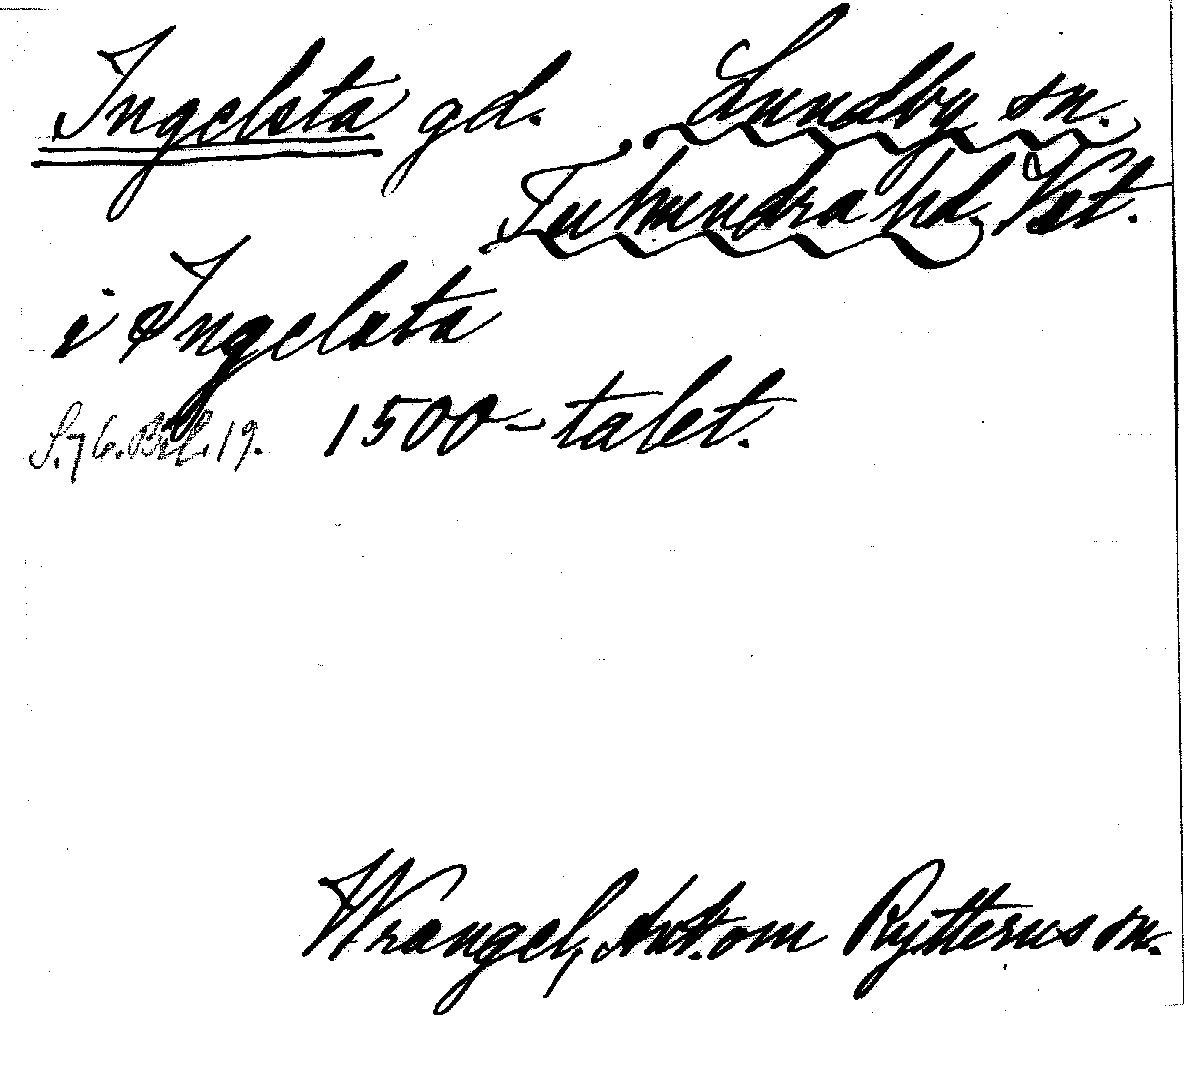 Ingelsta gd. Lundby sn.
Tuhundra hd. Vst.
i Ingelsta
S. 76. Bil. 19. 1500-talet.
Wrangel, Ant. om Rytterns sn.